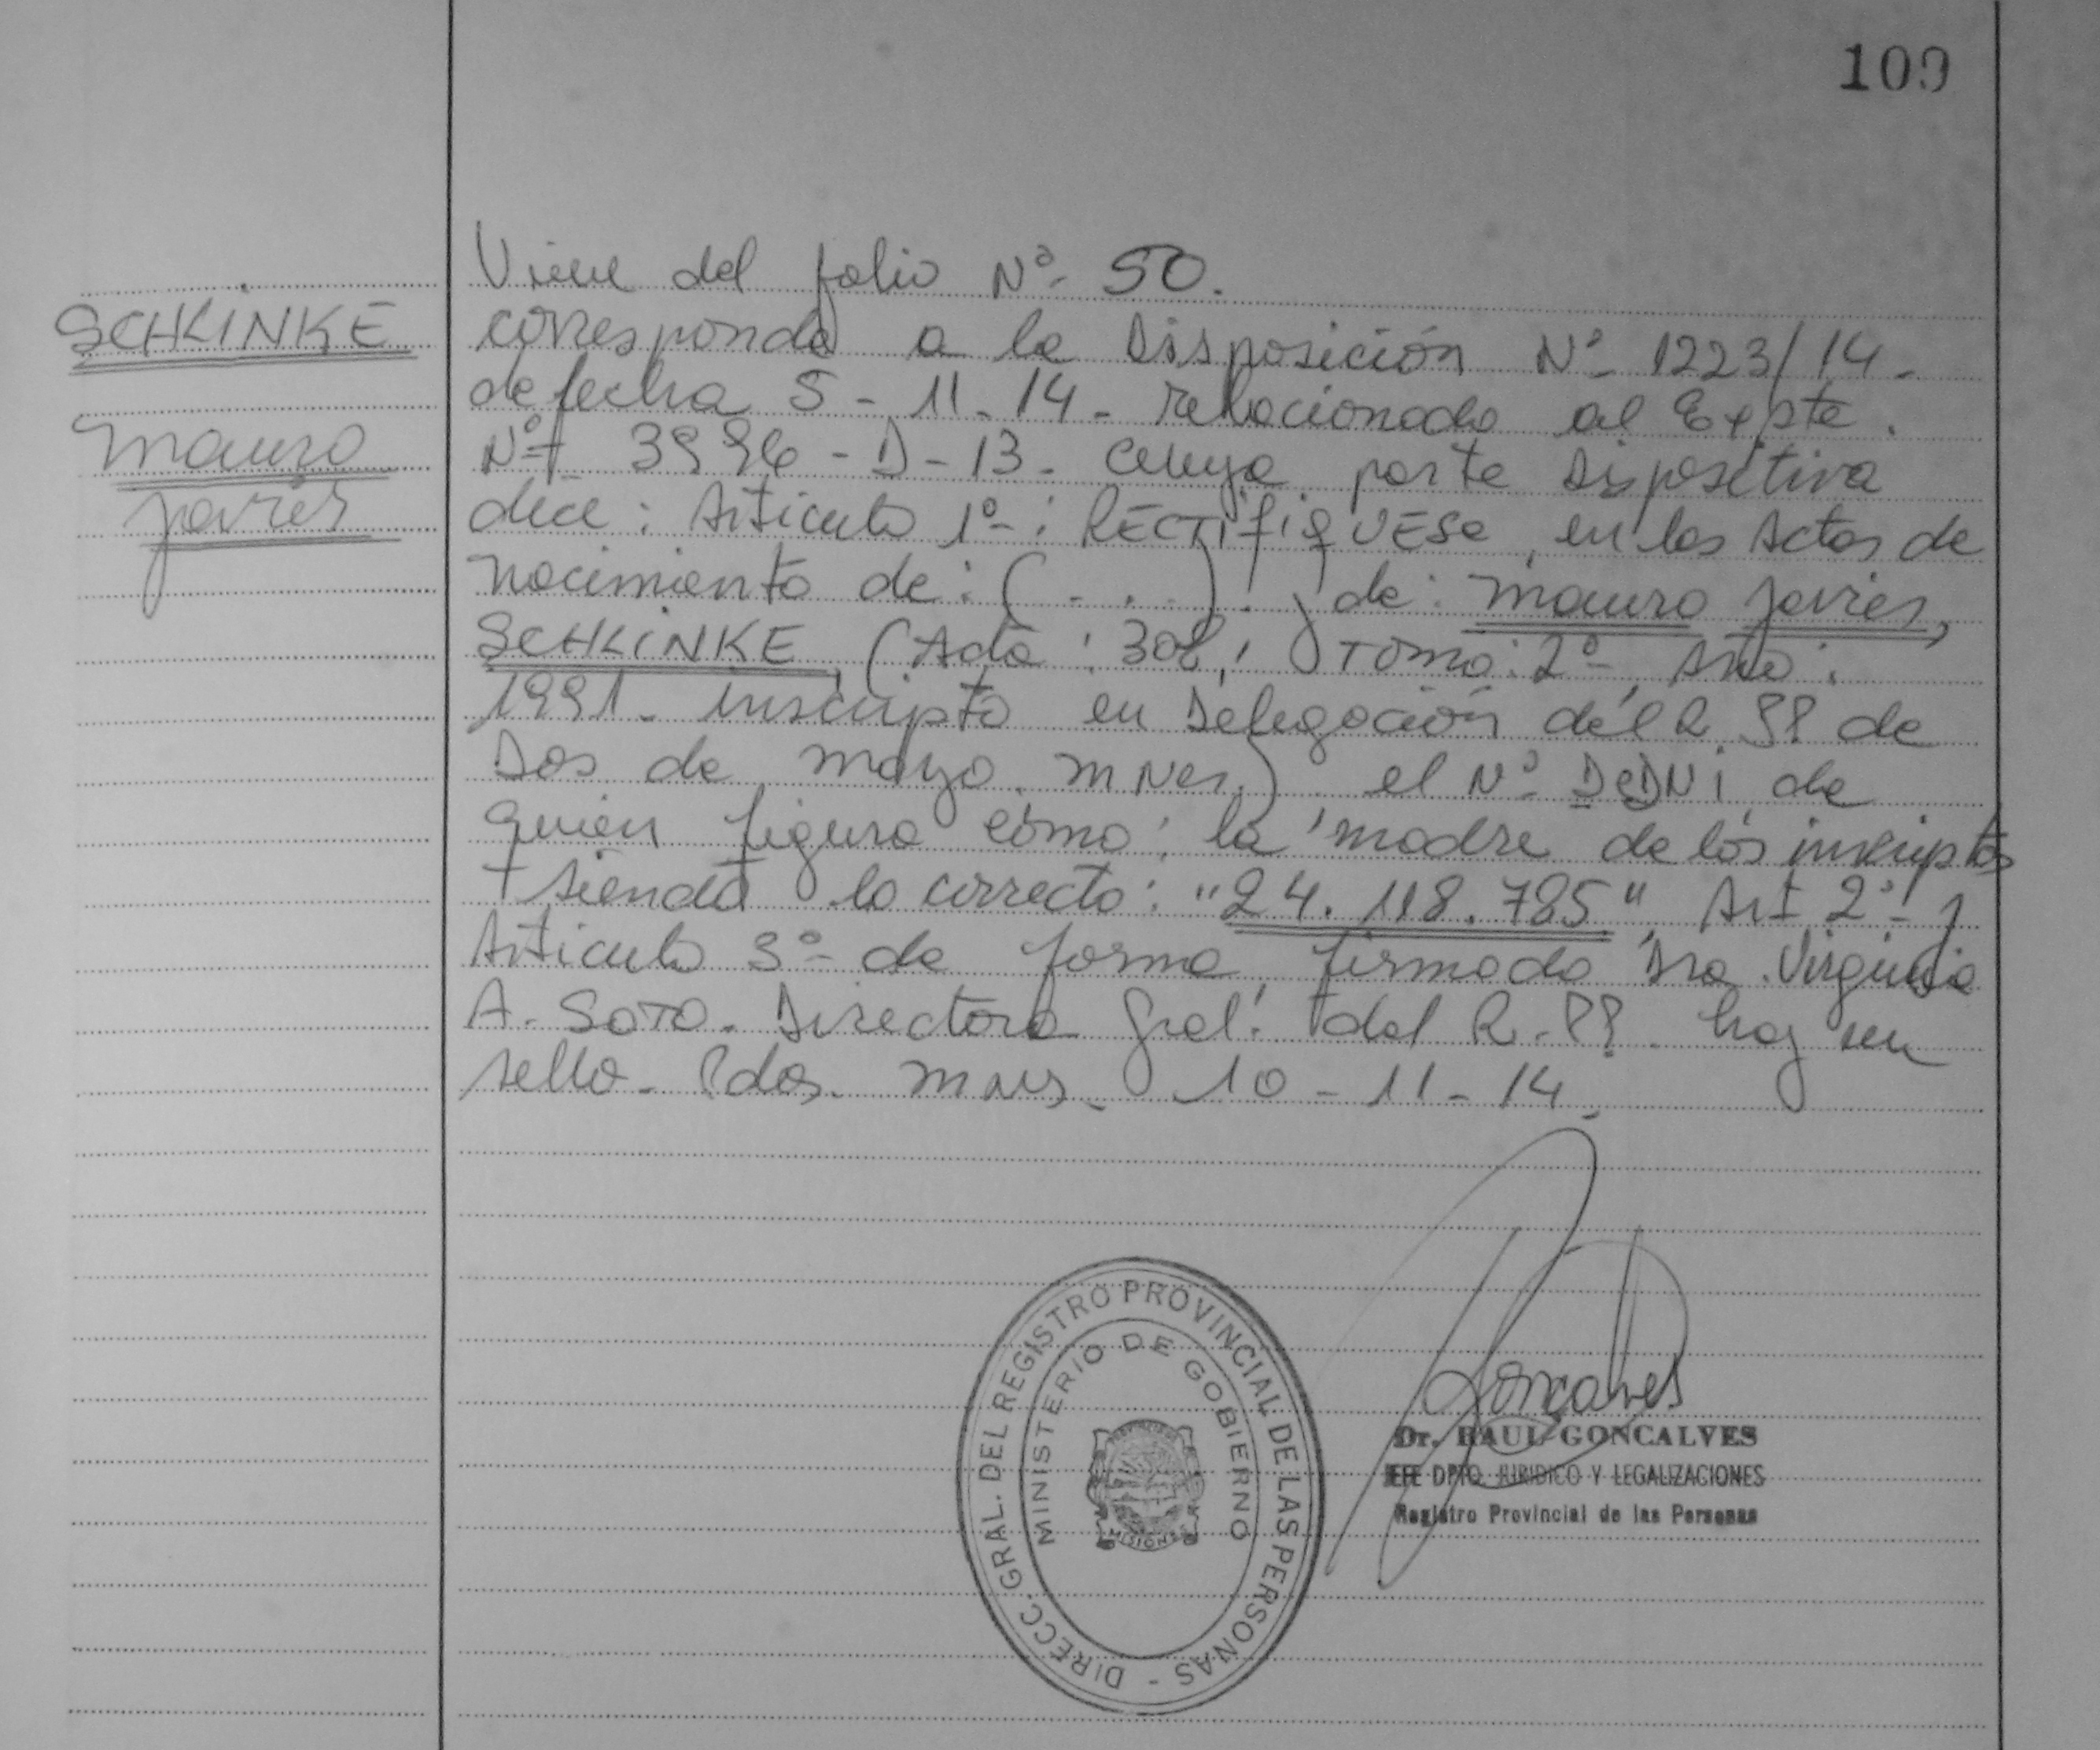 109
Viene del folio Nº- 50.
SCHLINKE
corresponde a la Disposición Nº- 1223/14-
de fecha 5-11-14- relacionado al Expte.
Mauro
Nº- 3996-D-13- cuya parte Dispositiva
Javier
dice: Articulo 1º-: RECTIFIQUESE, en las Actas de
nacimiento de: (- . . -). y de: Mauro Javier,
SCHLINKE, (Acta: 308, Tomo: 2º-, Año:
1991- inscripto en Delegación del R. PP de
Dos de mayo. Mnes.) el Nº- DeDNi, de
quien figura como: la madre de los inscriptos
siendo lo correcto: "24.118.785" Art 2º- y
Articulo 3º- de forma, firmado Dra. Virginia
A. Soto. Directora Gral. del R.PP. hay un
sello- Pdas. mns- 10-11-14.
DIRECC. GRAL. DEL REGISTRO PROVINCIAL DE LAS PERSONAS -
MINISTERIO DE GOBIERNO
MISIONES
Goncalves
Dr. RAUL GONCALVES
JEFE DPTO. JURIDICO Y LEGALIZACIONES
Registro Provincial de las Personas